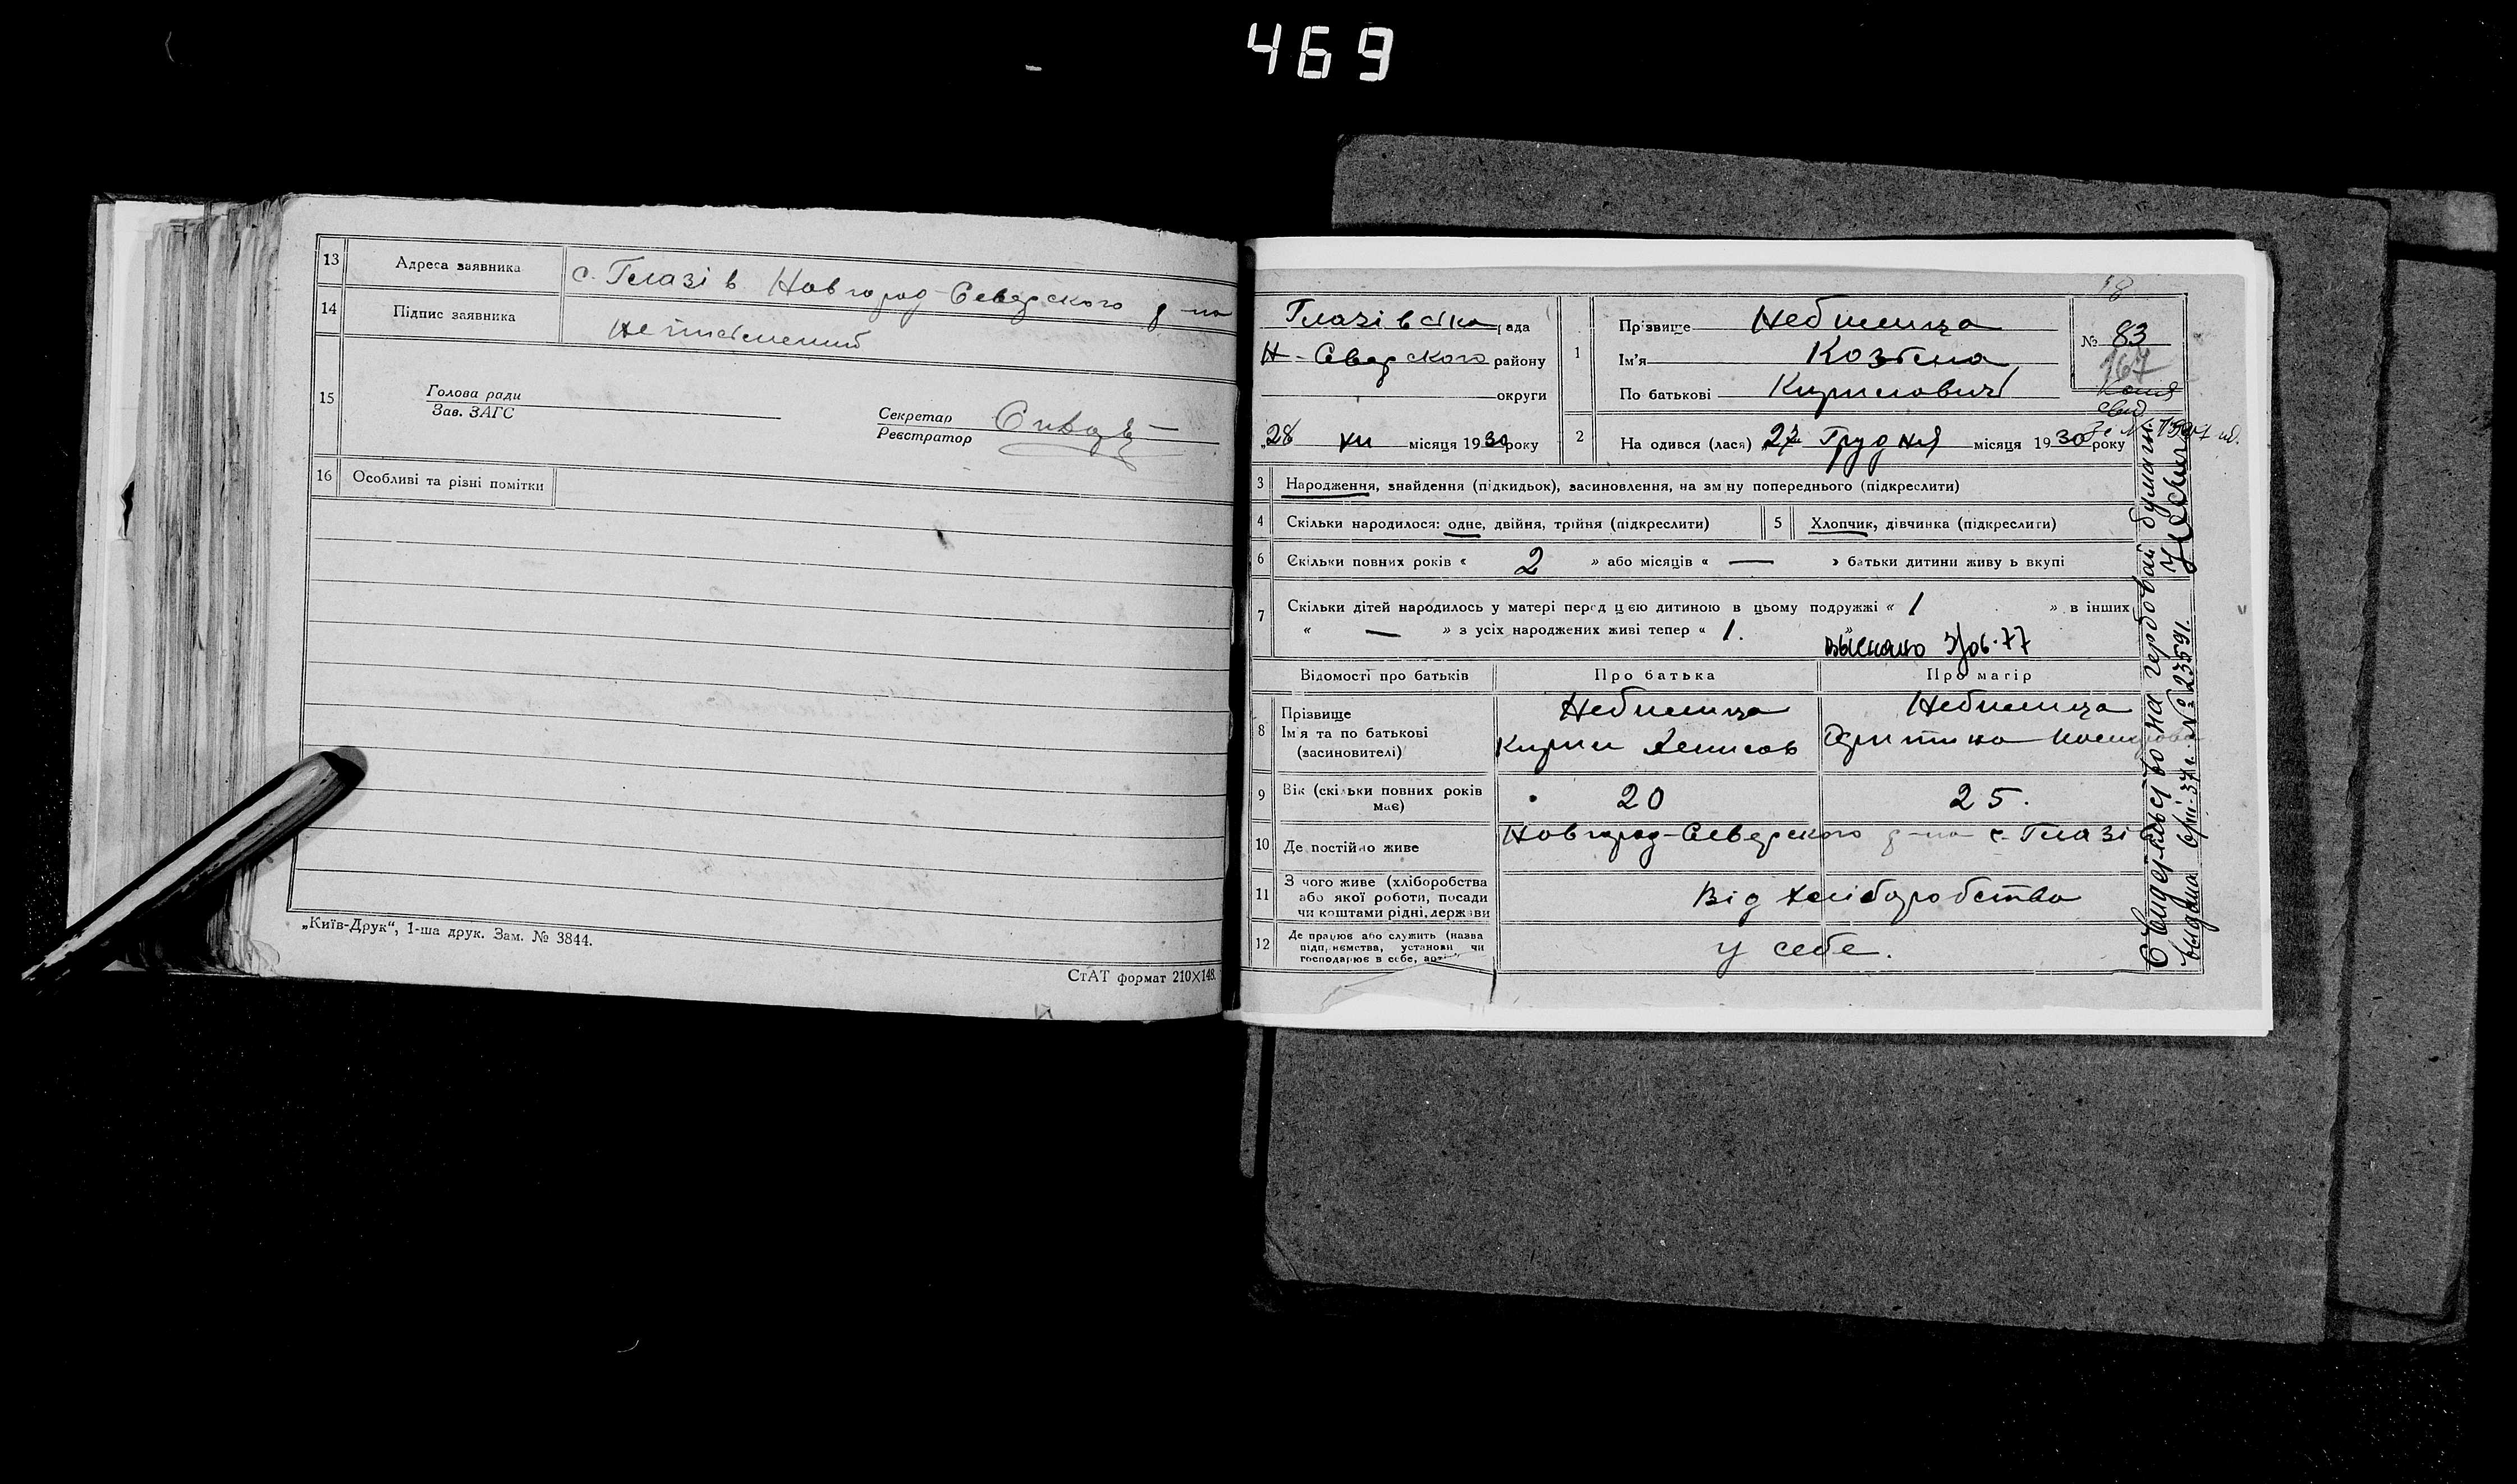 469
13 Адреса заявника с. Глазів Новгород-Сіверського р-на
14 Підпис заявника Неписьменний
15 Голова ради
Зав. ЗАГС
Секретар
Реєстратор
16 Особливі та різні помітки
„Київ-Друк“, 1-ша друк. Зам. № 3844.
СтАТ формат 210×148.
18
Глазівська рада
Н-Сіверского району
округи
„28 XII місяця 1930 року
1 Прізвище Небилица
Ім'я Козьма
По батькові Кирилович
№ 83
167
Копія
свид.
2 На одився (лася) 27 Грудня місяця 1930 року
3 Народження, знайдення (підкидьок), засиновлення, на зміну попереднього (підкреслити)
4 Скільки народилося: одне, двійня, трійня (підкреслити) 5 Хлопчик, дівчинка (підкреслити)
6 Скільки повних років « 2 » або місяців « — » батьки дитини живу ь вкупі
7 Скільки дітей народилось у матері перед цією дитиною в цьому подружжі « 1 » в інших
« — » з усіх народжених живі тепер « 1. »
выслано 3/06-77
Відомості про батьків Про батька Про матір
8 Прізвище
Ім'я та по батькові
(засиновителі)
Небилица
Кирил Денисов
Небилица
9 Вік (скільки повних років
має)
20 25.
10 Де постійно живе Новгород-Сіверского р-на с. Глазів
11 З чого живе (хліборобства
або якої роботи, посади
чи коштами рідні, держави
Від хліборобства
12 Де працює або служить (назва
підприємства, установи чи
господарює в себе,
у себе.
Свидетельство на гербовой бумаги.
выдана № 23591.